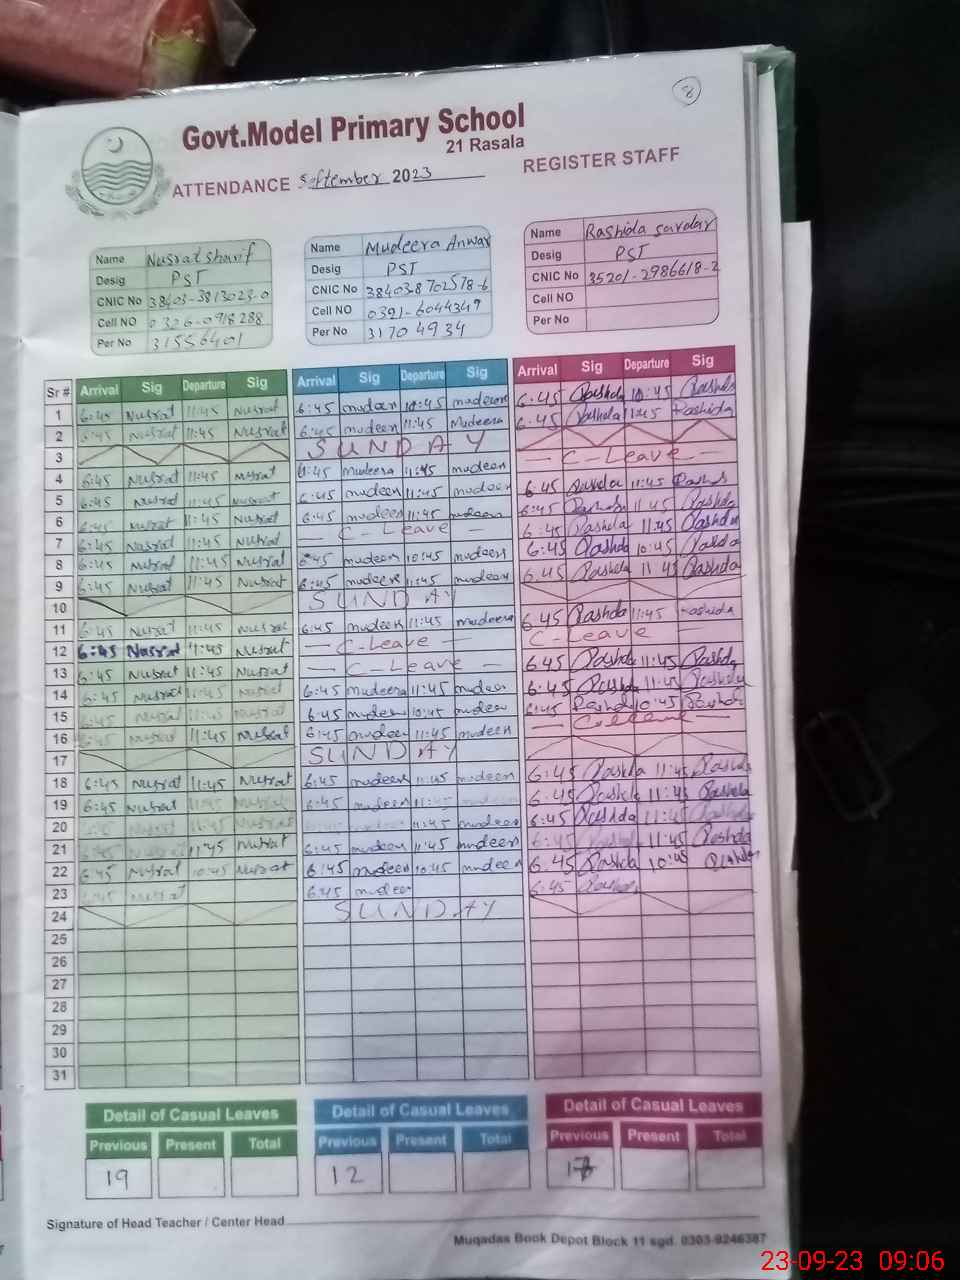 8
Govt.Model Primary School
21 Rasala
ATTENDANCE September 2023 REGISTER STAFF
Name Nusrat sharif
Desig PST
CNIC No 38403-3813023-0
Cell NO 0326-0918288
Per No 31556401
Name Mudeera Anwar
Desig PST
CNIC No 384038702578-6
Cell NO 0321-6044349
Per No 31704934
Name Rashida sardar
Desig PST
CNIC No 35201-2986618-2
Cell NO
Per No
Sr # Arrival Sig Departure Sig Arrival Sig Departure Sig Arrival Sig Departure Sig
1 6:45 Nusrat 11:45 Nusrat 6:45 mudeera 10:45 mudeera 6:45 Rashda 10:45 Rashda
2 6:45 Nusrat 11:45 Nusrat 6:45 mudeera 11:45 Mudeera 6:45 Rashda 11:45 Rashida
3 SUNDAY
4 6:45 Nusrat 11:45 Nusrat 6:45 Mudeera 11:45 mudeera — C-Leave —
5 6:45 Nusrat 11:45 Nusrat 6:45 mudeera 11:45 mudeera 6:45 Rashda 11:45 Rashda
6 6:45 Nusrat 11:45 Nusrat 6:45 mudeera 11:45 mudeera 6:45 Rashda 11:45 Rashda
7 6:45 Nusrat 11:45 Nusrat — C-Leave — 6:45 Rashda 11:45 Rashda
8 6:45 Nusrat 11:45 Nusrat 6:45 mudeera 10:45 mudeera 6:45 Rashda 10:45 Rashda
9 6:45 Nusrat 11:45 Nusrat 6:45 mudeera 11:45 mudeera 6:45 Rashda 11:45 Rashda
10 SUNDAY
11 6:45 Nusrat 11:45 Nusrat 6:45 mudeera 11:45 mudeera 6:45 Rashda 11:45 Rashida
12 6:45 Nusrat 11:45 Nusrat — C-Leave — C-Leave —
13 6:45 Nusrat 11:45 Nusrat — C-Leave — 6:45 Rashda 11:45 Rashda
14 6:45 Nusrat 11:45 Nusrat 6:45 mudeera 11:45 mudeera 6:45 Rashda 11:45 Rashda
15 6:45 Nusrat 11:45 Nusrat 6:45 mudeera 10:45 mudeera 6:45 Rashda 10:45 Rashda
16 6:45 Nusrat 11:45 Nusrat 6:45 mudeera 11:45 mudeera — C-Leave —
17 SUNDAY
18 6:45 Nusrat 11:45 Nusrat 6:45 mudeera 11:45 mudeera 6:45 Rashda 11:45 Rashda
19 6:45 Nusrat 11:45 Nusrat 6:45 mudeera 11:45 6:45 Rashda 11:45 Rashda
20 Nusrat 11:45 Nusrat 11:45 mudeera 6:45 Rashda 11:45 Rashda
21 6:45 Nusrat 11:45 Nusrat 6:45 mudeera 11:45 mudeera 6:45 Rashda 11:45 Rashda
22 6:45 Nusrat 10:45 Nusrat 6:45 mudeera 10:45 mudeera 6:45 Rashda 10:45 Rashda
23 6:45 Nusrat 6:45 mudeera 6:45 Rashda
24 SUNDAY
25
26
27
28
29
30
31
Detail of Casual Leaves Detail of Casual Leaves Detail of Casual Leaves
Previous Present Total Previous Present Total Previous Present Total
19 12
Signature of Head Teacher / Center Head
Muqadas Book Depot Block 11 sgd. 0303-9246387
23-09-23 09:06